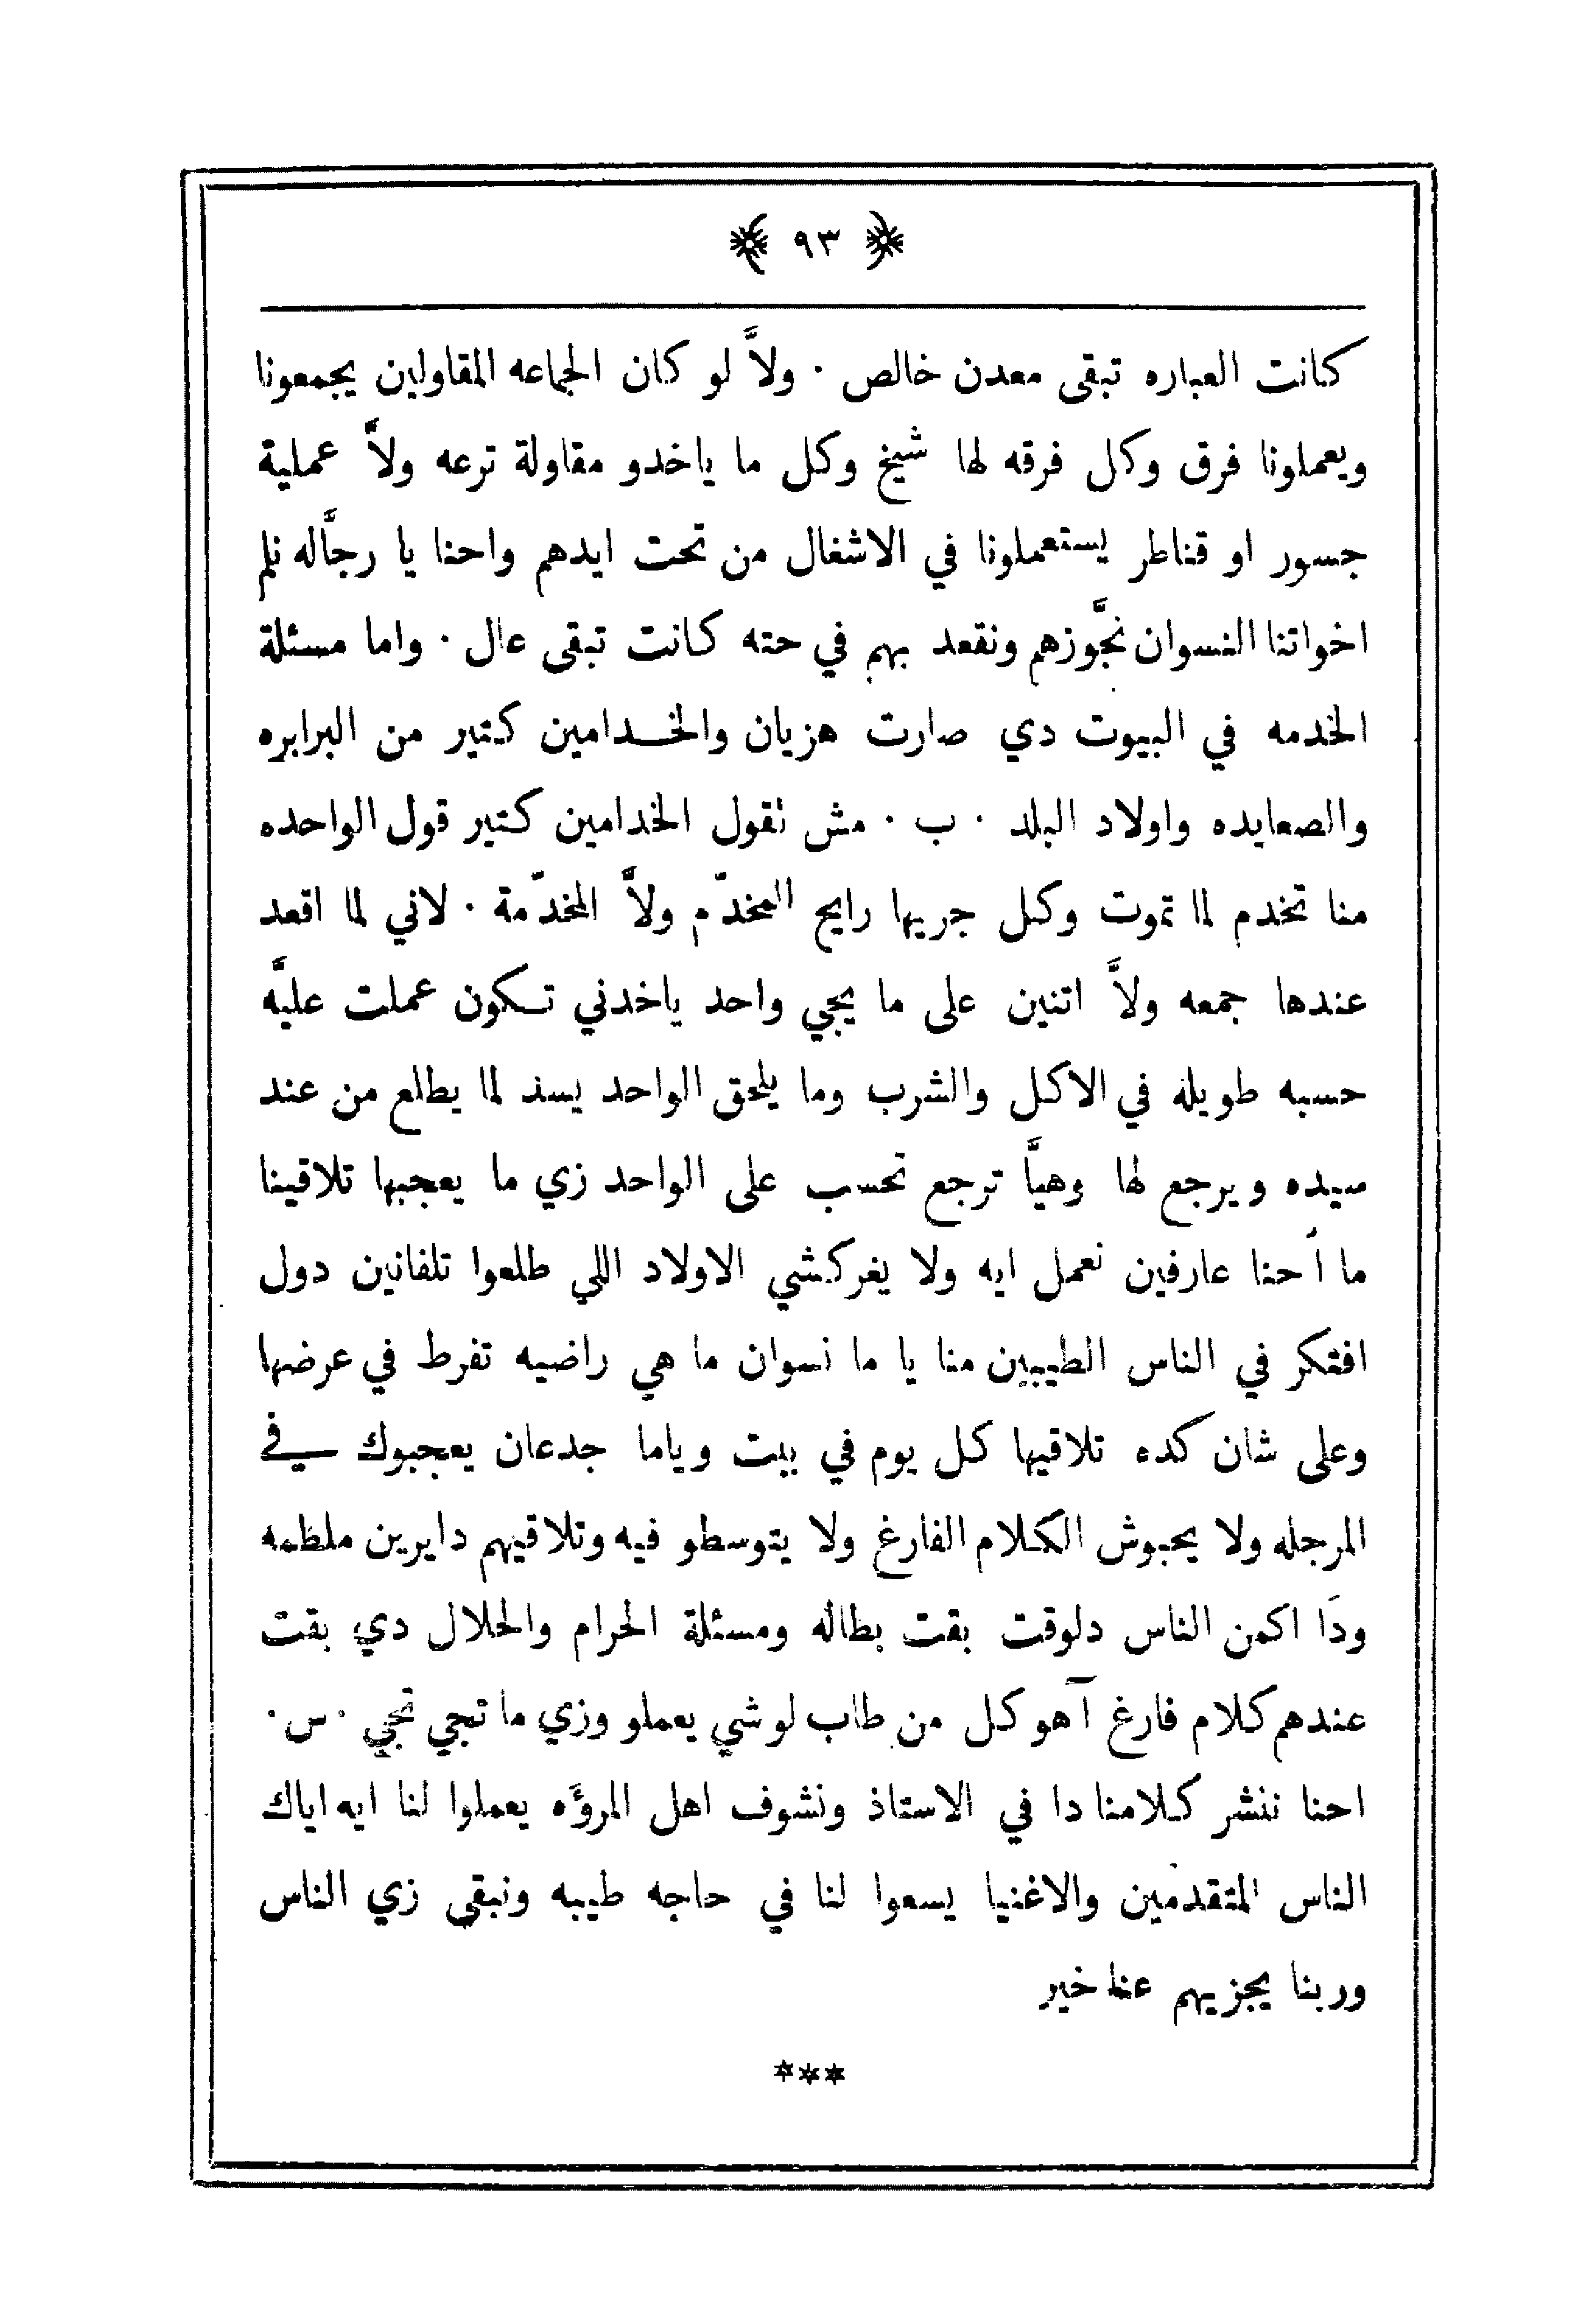 ٩٣
كانت العباره تبقى معدن خالص ٠ ولاَّ لو كان الجماعه المقاولين يجمعونا
ويعملونا فرق وكل فرقه لها شيخ وكل ما ياخدو مقاولة ترعه ولاَّ عملية
جسور او قناطر يستعملونا في الاشغال من تحت ايدهم واحنا يا رجَّاله نلم
اخواتنا النسوان نجَّوزهم ونقعد بهم في حته كانت تبقى عال ٠ واما مسئلة
الخدمه في البيوت دي صارت هزيان والخدامين كتير من البرابره
والصعايده واولاد البلد ٠ ب ٠ مش نقول الخدامين كتير قول الواحده
منا تخدم لما تموت وكل جريها رايح المخدّم ولاَّ المخدّمة ٠ لاني لما اقعد
عندها جمعه ولاَّ اتنين على ما يجي واحد ياخدني تكون عملت عليَّه
حسبه طويله في الاكل والشرب وما يلحق الواحد يسد لما يطلع من عند
سيده ويرجع لها وهيَّا ترجع تحسب على الواحد زي ما يعجبها تلاقينا
ما اَحنا عارفين نعمل ايه ولا يغركشي الاولاد اللي طلعوا تلفانين دول
افتكر في الناس الطيبين منا يا ما نسوان ما هي راضيه تفرط في عرضها
وعلى شان كده تلاقيها كل يوم في بيت وياما جدعان يعجبوك في
المرجله ولا يحبوش الكلام الفارغ ولا يتوسطو فيه وتلاقيهم دايرين ملطمه
ودَا اكمن الناس دلوقت بقت بطاله ومسئلة الحرام والحلال دي بقت
عندهم كلام فارغ آهو كل من طاب لوشي يعملو وزي ما تيجي تجي ٠ س ٠
احنا ننشر كلامنا دا في الاستاذ ونشوف اهل المروَّه يعملوا لنا ايه اياك
الناس المتقدمين والاغنيا يسعوا لنا في حاجه طيبه ونبقى زي الناس
وربنا يجزيهم عنا خير
***